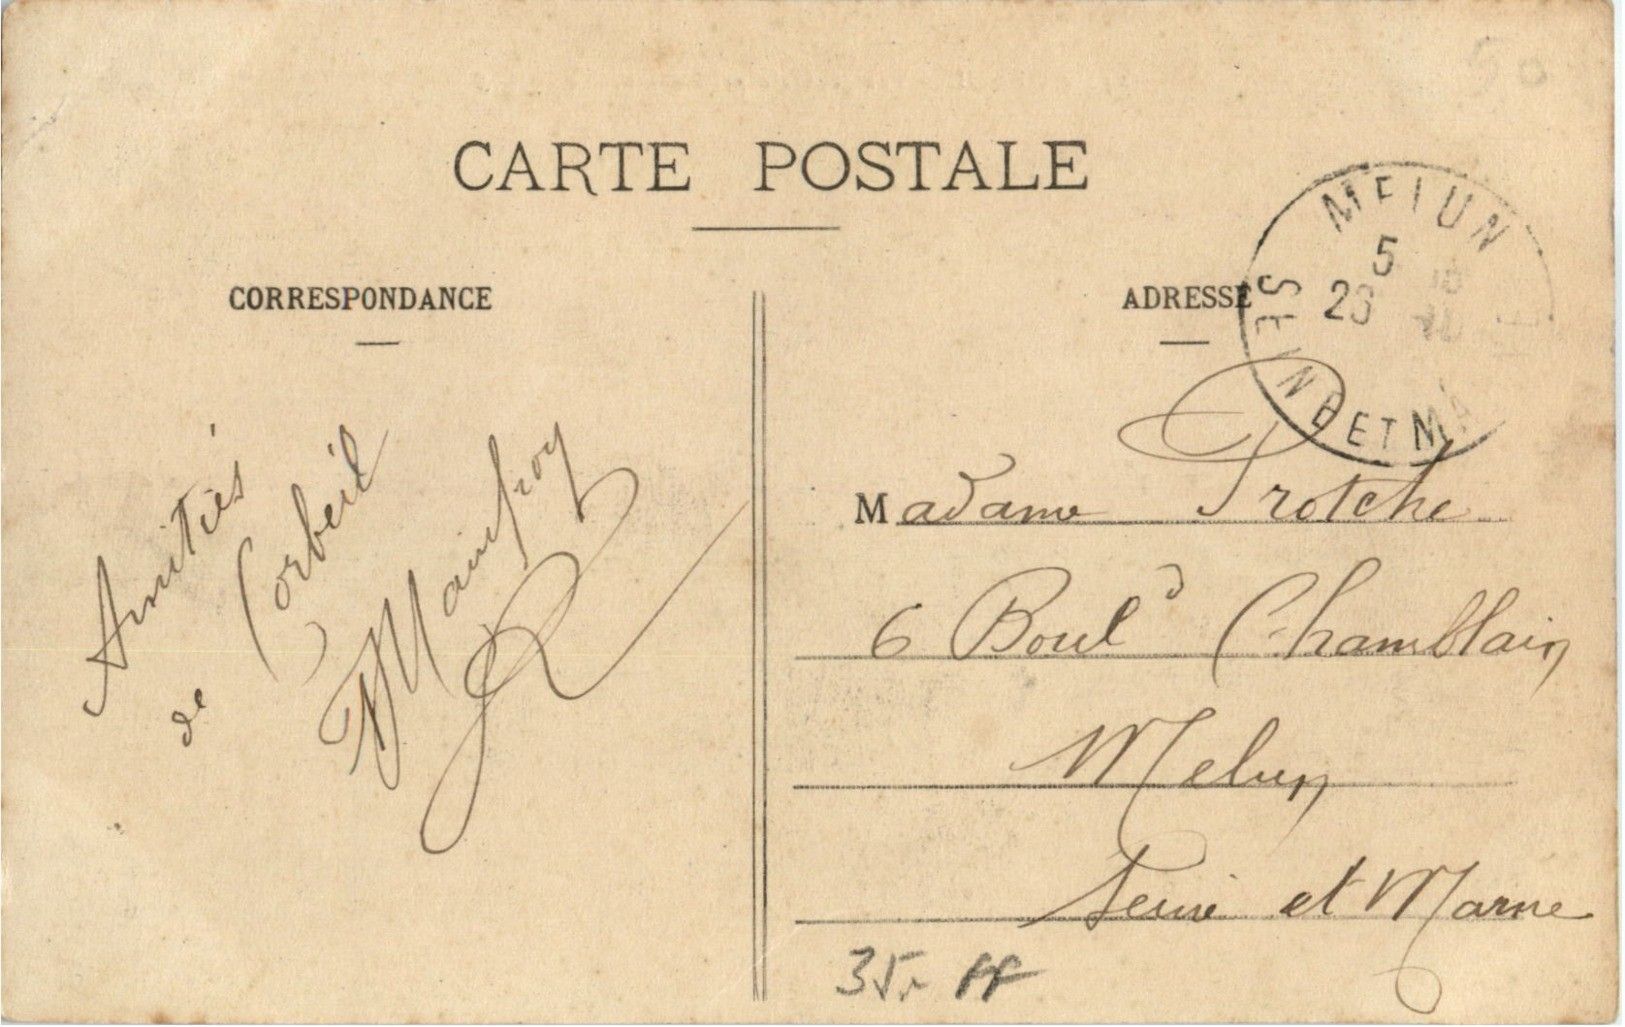 CARTE POSTALE
CORRESPONDANCE
Amitiés
de Corbeil
Mainfroy
ADRESSE
MELUN
5
SEINE ET MA
Madame Protche
6 Boul^d Chamblain
Melun
Seine et Marne
35
50